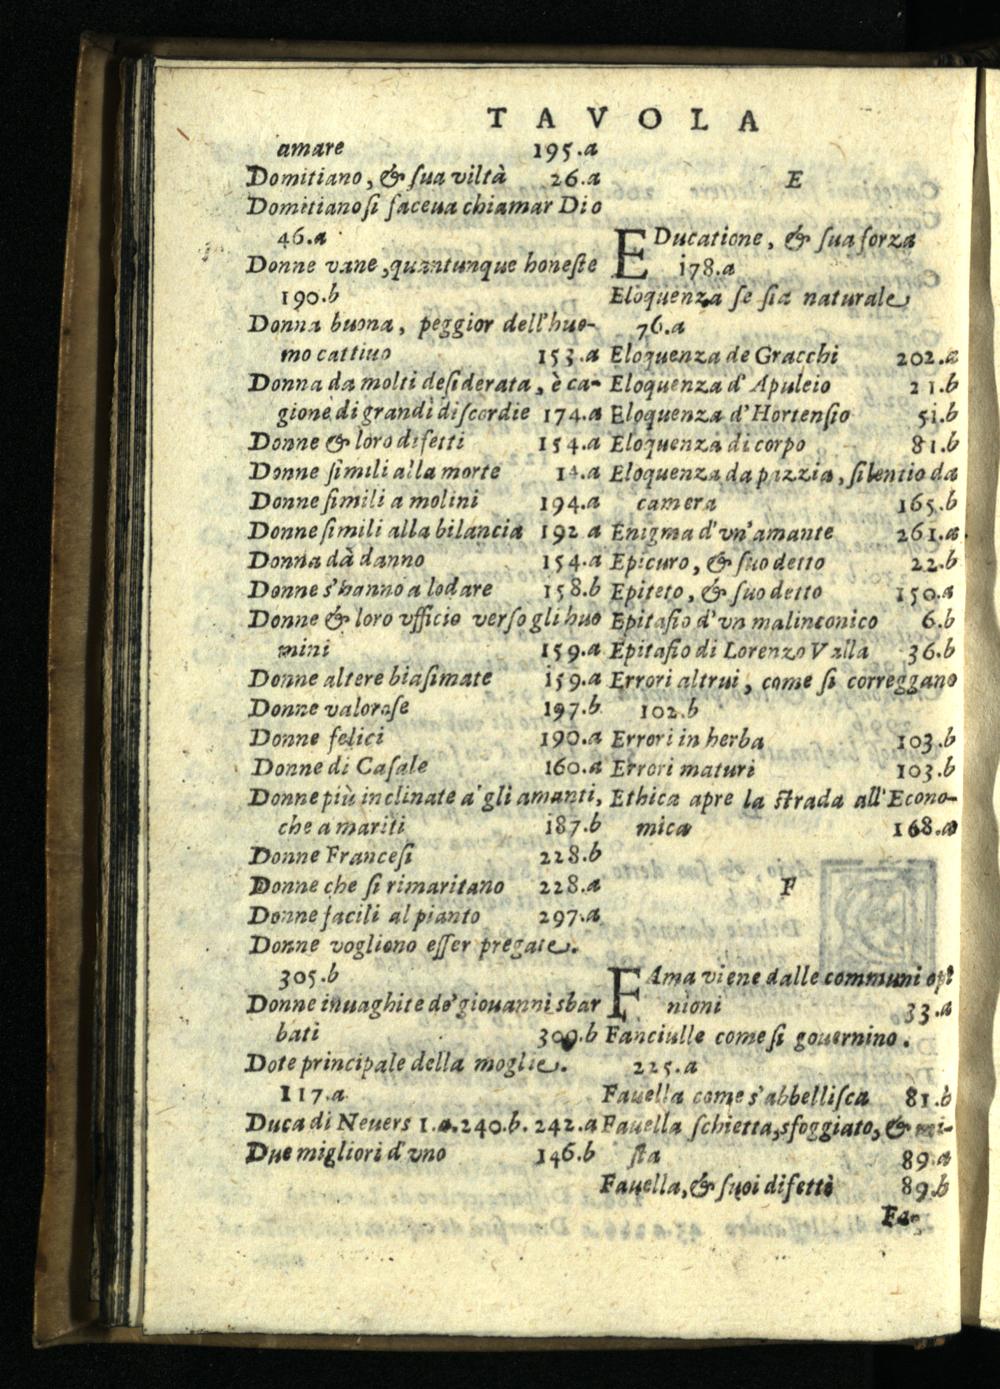 TAVOLA
amare 195.a
Domitiano, & sua viltà 26.a
Domitiano si faceua chiamar Dio
46.a
Donne vane, quantunque honeste
190.b
Donna buona, peggior dell'huo-
mo cattiuo 153.a
Donna da molti desiderata, è ca-
gione di grandi discordie 174.a
Donne & loro difetti 154.a
Donne simili alla morte 14.a
Donne simili a molini 194.a
Donne simili alla bilancia 192 a
Donna dà danno 154.a
Donne s'hanno a lodare 158.b
Donne & loro vfficio verso gli huo
mini 159.a
Donne altere biasimate 159.a
Donne valorose 197.b
Donne felici 190.a
Donne di Casale 160.a
Donne più inclinate a gli amanti,
che a mariti 187.b
Donne Francesi 228.b
Donne che si rimaritano 228.a
Donne facili al pianto 297.a
Donne vogliono esser pregate.
305.b
Donne inuaghite de' giouanni sbar
bati 309.b
Dote principale della moglie.
117.a
Duca di Neuers 1.a.240.b.242.a
Due migliori d'vno 146.b
E
EDucatione, & sua forza
178.a
Eloquenza se sia naturale
76.a
Eloquenza de Gracchi 202.a
Eloquenza d'Apuleio 21.b
Eloquenza d'Hortensio 51.b
Eloquenza di corpo 81.b
Eloquenza da pazzia, silentio da
camera 165.b
Enigma d'vn'amante 261.a.
Epicuro, & suo detto 22.b
Epiteto, & suo detto 150.a
Epitafio d'vn malinconico 6.b
Epitafio di Lorenzo Valla 36.b
Errori altrui, come si correggano
102.b
Errori in herba 103.b
Errori maturi 103.b
Ethica apre la strada all'Econo-
mica 168.a
F
FAma viene dalle communi opi
nioni 33.a
Fanciulle come si gouernino.
225.a
Fauella come s'abbellisca 81.b
Fauella schietta, sfoggiato, & mi-
sta 89.a
Fauella, & suoi difetti 89.b
Fa-